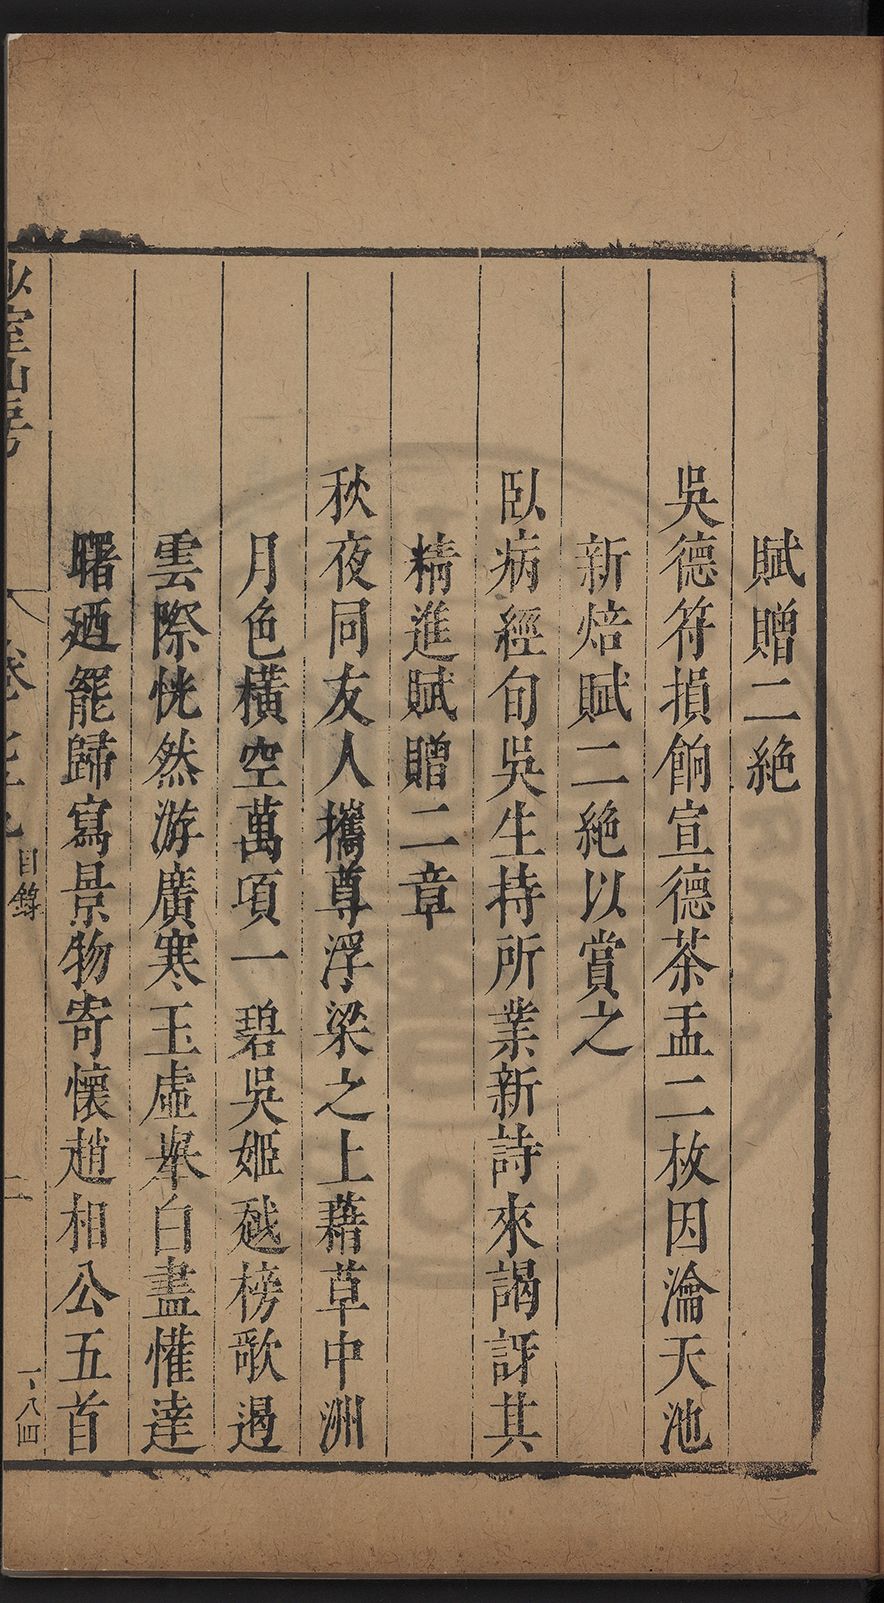 賦贈二絶
吳德符損餉宣德茶盂二枚因瀹天池
新焙賦二絶以賞之
臥病經旬吳生持所業新詩來謁訝其
精進賦贈二章
秋夜同友人攜尊浮梁之上藉草中洲
月色橫空萬項一碧吳姬越榜歌遏
雲際恍然游廣寒玉虛舉白盡懽達
曙廼罷歸寫景物寄懷趙相公五首
少室山房
卷之七十九
目錄
二
一八四